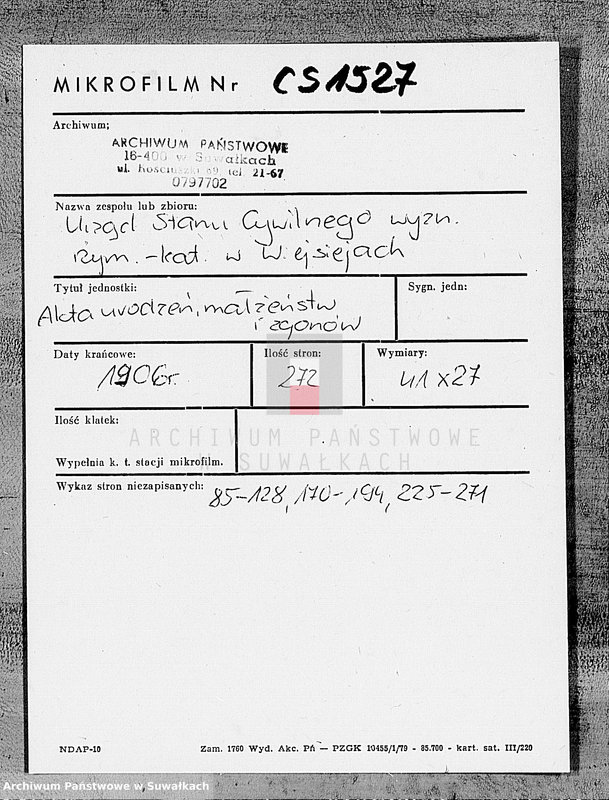 MIKROFILM Nr CS1527
Archiwum;
ARCHIWUM PAŃSTWOWE
16-400 w Suwałkach
ul. Kościuszki 69 tel. 21-67
0797702
Nazwa zespołu lub zbioru:
Urząd Stanu Cywilnego wyzn.
rzym.-kat. w Wiejsiejach
Tytuł jednostki:
Akta urodzeń, małżeństw
i zgonów
Sygn. jedn:
Daty krańcowe:
1906r.
Ilość stron:
272
Wymiary:
41 x 27
Ilość klatek:
Wypełnia k. t. stacji mikrofilm.
ARCHIWUM PAŃSTWOWE
W SUWAŁKACH
Wykaz stron niezapisanych: 85-128, 170-194, 225-271
NDAP-10
Zam. 1760 Wyd. Akc. Pń — PZGK 10455/1/79 - 85.700 - kart. sat. III/220
Archiwum Państwowe w Suwałkach